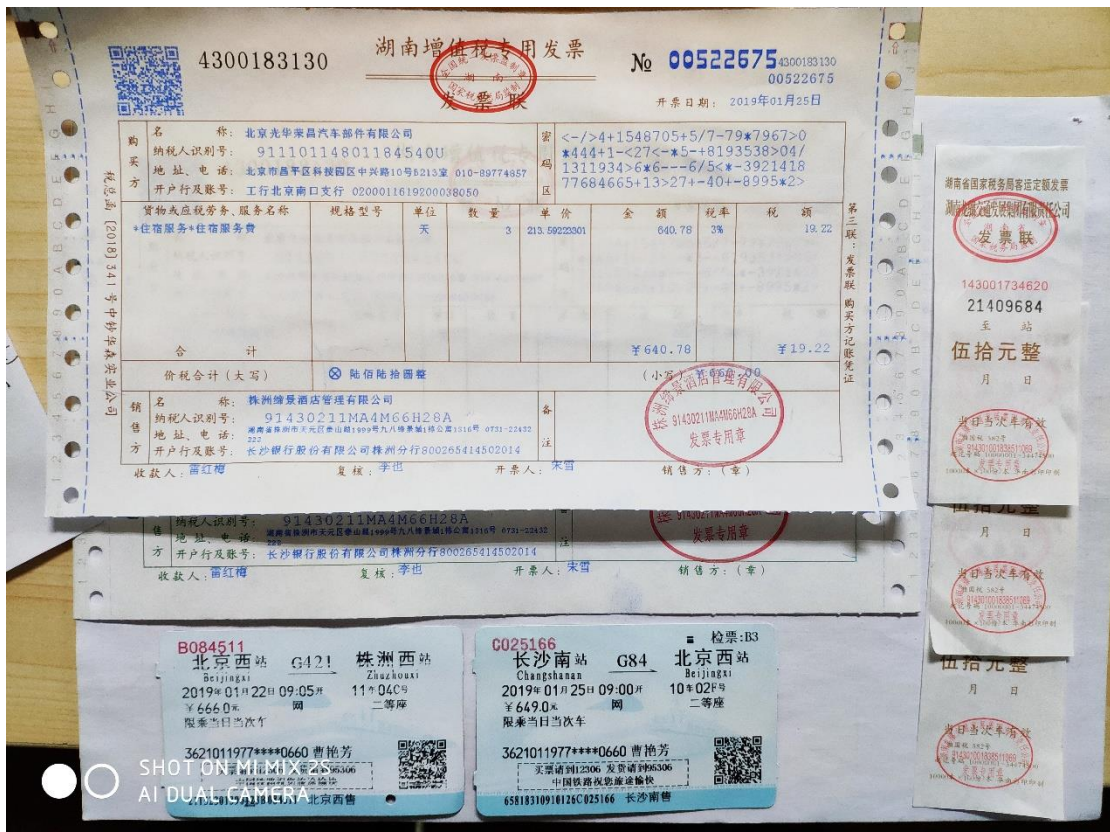 4300183130
湖南增值税专用发票
全国统一发票监制章
湖南
国家税务总局监制
发票联
№ 00522675
4300183130
00522675
开票日期: 2019年01月25日
购买方
名 称: 北京光华荣昌汽车部件有限公司
纳税人识别号: 91110114801184540U
地 址、电 话: 北京市昌平区科技园区中兴路10号5213室 010-89774857
开户行及账号: 工行北京南口支行 0200011619200038050
密码区
<-/>4+1548705+5/7-79*7967>0
*444+1-<27<-*5-+8193538>04/
1311934>6*6---6/5<*-3921418
77684665+13>27+-40+-8995*2>
货物或应税劳务、服务名称 规格型号 单位 数 量 单 价 金 额 税率 税 额
*住宿服务*住宿服务费 天 3 213.59223301 640.78 3% 19.22
合 计 ¥640.78 ¥19.22
价税合计(大写) ⊗ 陆佰陆拾圆整 (小写) ¥660.00
销售方
名 称: 株洲缔景酒店管理有限公司
纳税人识别号: 91430211MA4M66H28A
地 址、电 话: 湖南省株洲市天元区泰山路1999号九八缔景城1栋公寓1316号 0731-22432
222
开户行及账号: 长沙银行股份有限公司株洲分行800265414502014
备注
株洲缔景酒店管理有限公司
91430211MA4M66H28A
发票专用章
收款人: 雷红梅 复核: 李也 开票人: 宋雪 销售方: (章)
税总函[2018]341号中钞华森实业公司
第三联:发票联 购买方记账凭证
售方
纳税人识别号: 91430211MA4M66H28A
地 址、电 话: 湖南省株洲市天元区泰山路1999号九八缔景城1栋公寓1316号 0731-22432
222
开户行及账号: 长沙银行股份有限公司株洲分行800265414502014
注
91430211MA4M66H28A
发票专用章
收款人: 雷红梅 复核: 李也 开票人: 宋雪 销售方: (章)
湖南省国家税务局客运定额发票
发票联
143001734620
21409684
至 站
伍拾元整
月 日
当日当次车有效
发票专用章
伍拾元整
月 日
当日当次车有效
伍拾元整
月 日
当日当次车有效
B084511
北京西站 G421 株洲西站
Beijingxi Zhuzhouxi
2019年01月22日09:05开 11车04C号
¥666.0元 网 二等座
限乘当日当次车
3621011977****0660 曹艳芳
北京西售
C025166 检票:B3
长沙南站 G84 北京西站
Changshanan Beijingxi
2019年01月25日09:00开 10车02F号
¥649.0元 网 二等座
限乘当日当次车
3621011977****0660 曹艳芳
买票请到12306 发货请到95306
中国铁路祝您旅途愉快
65818310910126C025166 长沙南售
SHOT ON MI MIX 2S
AI DUAL CAMERA